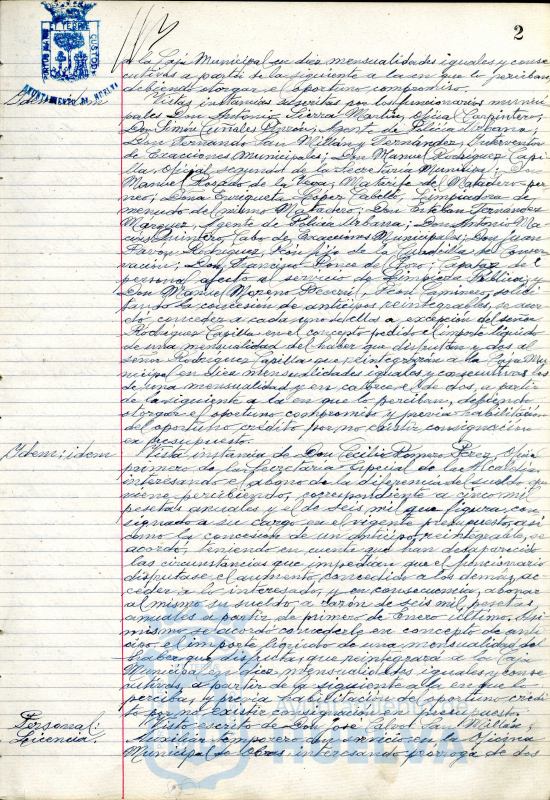 2
AYUNTAMIENTO DE HUELVA
a la Caja Municipal en diez mensualidades iguales y conse
cutivas a partir de la siguiente a la en que lo perciban
debiendo otorgar el oportuno compromiso.
Vistas instancias suscritas por los funcionarios muni
pales Don Antonio Sierra Martín, Carpintero;
Don Simón Agente de Policía Urbana;
Don Fernando San Millán y Fernández, Interventor
de Exacciones Municipales; Don Manuel Rodríguez Capi
lla, Oficial segundo de la Secretaría Municipal; Don
Manuel Rosado de la Vega, Matarife del Matadero
Doña Enriqueta López Cabello, Limpiadora de
menudo del mismo Matadero; Don Esteban Fernández
Márquez, Agente de Policía Urbana; Don Antonio Ma
Quintero, Cabo de Exacciones Municipales; Don Juan
Rodríguez, Peón fijo de la Cuadrilla de Conser
vación; Don Francisco Ponce de
personal afecto al servicio de Limpieza Pública;
Don Manuel Moreno Peón Caminero, soli
tando la concesión de anticipos reintegrables, se acor
dó conceder a cada uno de ellos a excepción del señor
Rodríguez Capilla en el concepto pedido el importe líquido
de una mensualidad del haber que disfrutan y dos al
señor Rodríguez Capilla que reintegrarán a la Caja Mu
nicipal en diez mensualidades iguales y consecutivas los
de una mensualidad y en catorce el de dos, a partir
de la siguiente a la en que lo perciban, debiendo
otorgar el oportuno compromiso y previa habilitación
del oportuno crédito por no existir consignación
en presupuesto.
Idem; idem
Vista instancia de Don Cecilio Romero Pérez, Oficial
primero de la Secretaría Especial de la Alcaldía
interesando el abono de la diferencia del sueldo que
viene percibiendo, correspondiente a cinco mil
pesetas anuales y el de seis mil que figura con
signado a su cargo en el vigente presupuesto, así
como la concesión de un anticipo reintegrable, se
acordó, teniendo en cuenta que han desaparecido
las circunstancias que impedían que el funcionario
disfrutase el aumento concedido a los demás, ac
ceder a lo interesado, y en consecuencia, abonar
al mismo su sueldo a razón de seis mil pesetas
anuales a partir de primero de Enero último. Asi
mismo se acordó concederle en concepto de anti
cipo el importe líquido de una mensualidad del
haber que disfruta, que reintegrará a la Caja
Municipal en diez mensualidades iguales y conse
cutivas, a partir de la siguiente a la en que lo
perciba, y previa habilitación de oportuno crédi
to por no existir consignación en presupuesto.
Personal:
Licencia.
Visto escrito de Don José Calvo San Millán,
Auxiliar temporero con servicio en la Oficina
Municipal de Obras interesando prórroga de dos
Ayuntamiento de
HUELVA